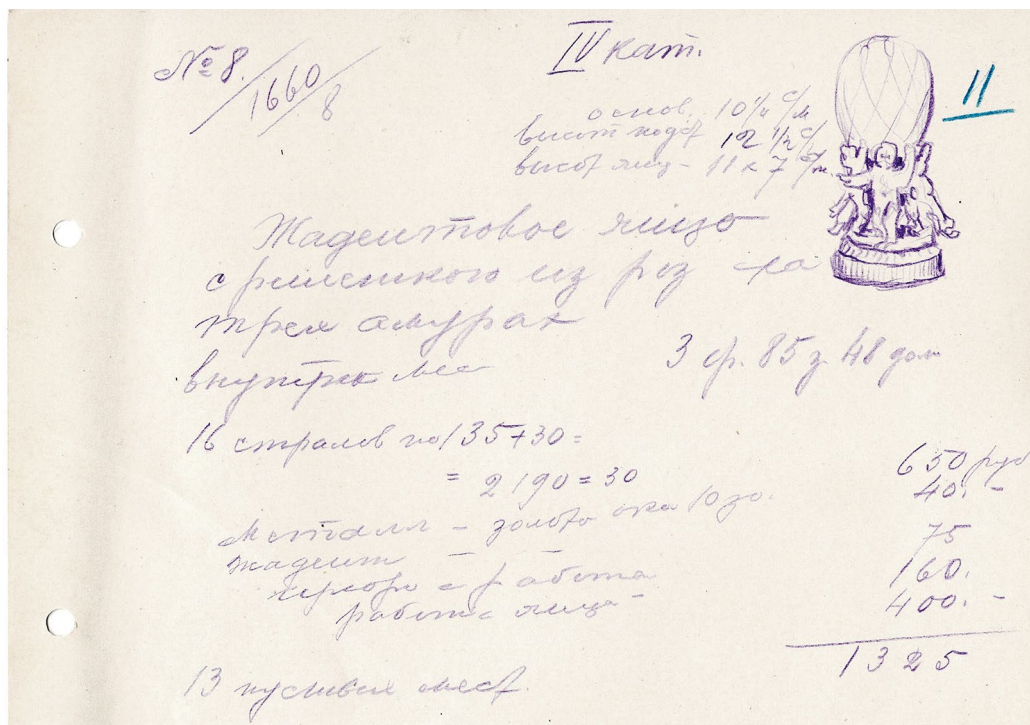 № 8. / 1660 / 8
IV кат.
11
основ. 10 1/4 с/м
высот подст 12 1/2 с/
высот яиц - 11 x 7 с/м.
Жадеитовое яйцо
с из роз на
трех амурах
внутри
3 ф. 85 з 48 дол
16 стралов по 135+30=
= 2190=30
650 руб
Металл - золота 10 зо. 40. -
жадеит — 75
серебро с работа 160.
работа яйца - 400. -
1325
13 пустых мест.